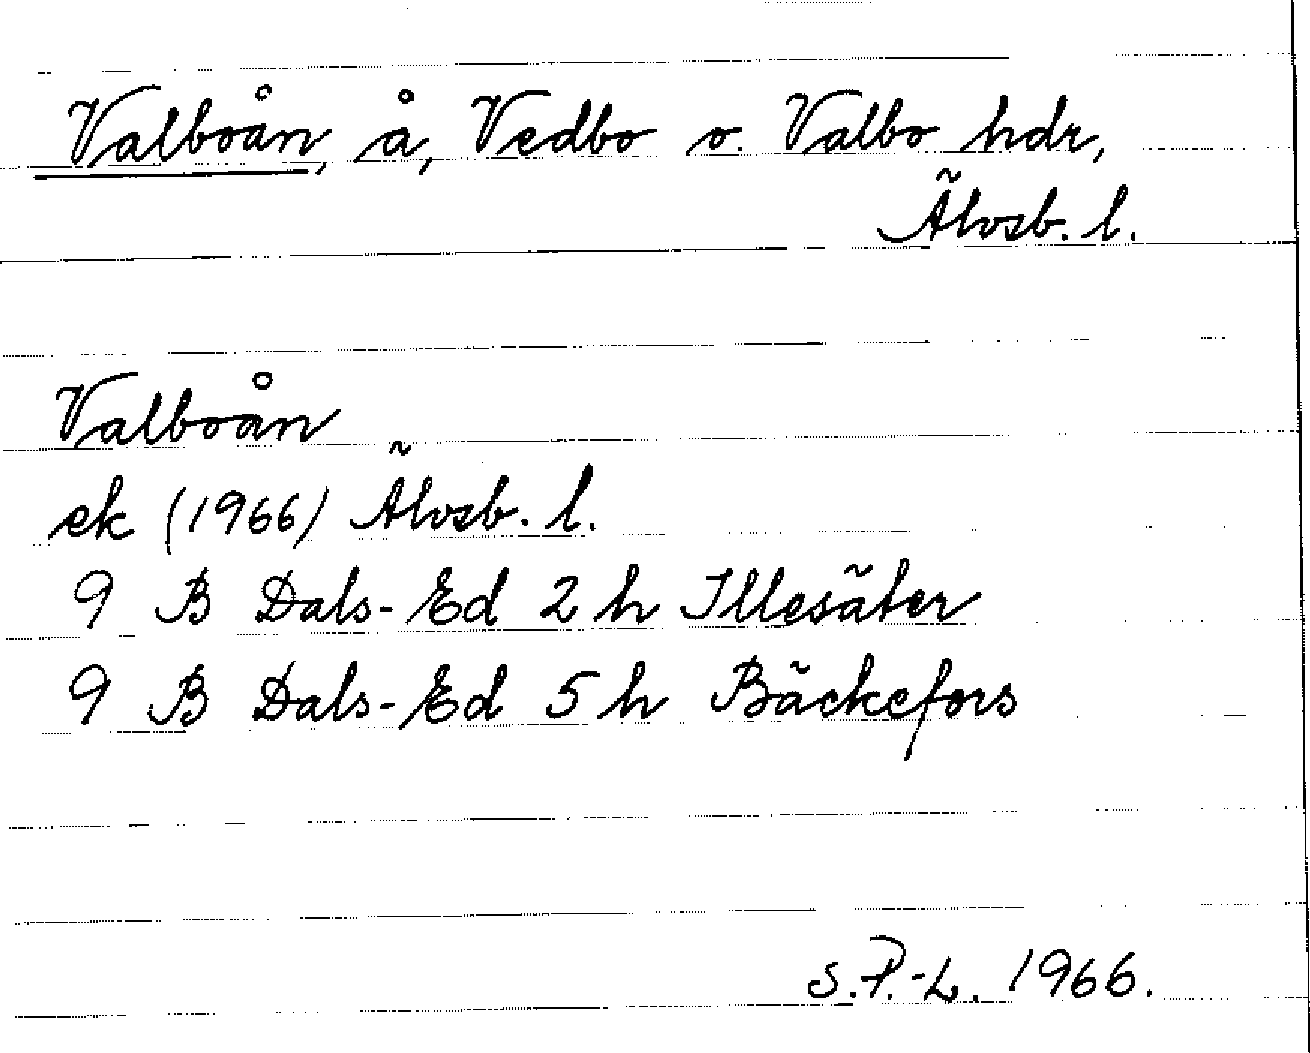 Valboån, å, Vedbo o. Valbo hdr,
Älvsb. l.
Valboån
ek (1966) Älvsb. l.
9 B Dals-Ed 2 h Illesäter
9 B Dals-Ed 5 h Bäckefors
S.P.-L. 1966.